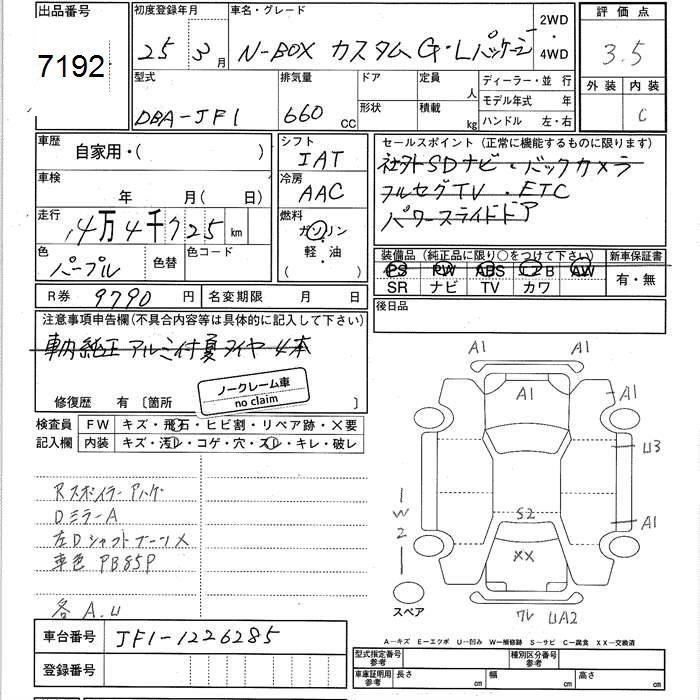 出品番号
7192
初度登録年月
25 3月
車名・グレード
N-BOX カスタム G・Lパッケージ
2WD
・
4WD
評価点
3.5
外装 内装
C
型式
DBA-JF1
排気量
660 CC
ドア
形状
定員 人
積載 kg
ディーラー・並行
モデル年式 年
ハンドル 左・右
車歴
自家用・( )
車検
年 月( 日)
走行
4万4千725 km
色
パープル
色替
色コード
シフト
IAT
冷房
AAC
燃料
ガソリン
・
軽・油
( )
セールスポイント(正常に機能するものに限ります)
社外SDナビ・バックカメラ
フルセグTV・ETC
パワースライドドア
装備品(純正品に限り○をつけて下さい)
PS PW ABS エアB AW
SR ナビ TV カワ
新車保証書
有・無
後日品
R券 9790 円
名変期限 月 日
注意事項申告欄(不具合内容等は具体的に記入して下さい)
車内純正アルミ付夏タイヤ4本
修復歴 有〔箇所 〕
ノークレーム車
no claim
検査員
記入欄
FW キズ・飛石・ヒビ割・リペア跡・×要
内装 キズ・汚レ・コゲ・穴・スレ・キレ・破レ
Rスポイラーアハゲ
DミラーA
左Dシャフトブーツ×
車色 PB85P
各 A.U
車台番号 JF1-1226285
登録番号
A1
A1
A1
U3
A1
S2
XX
1
W
2
スペア
ワレ UA2
A―キズ E―エクボ U―凹み W―補修跡 S―サビ C―腐食 XX―交換済
型式指定番号
参考
種別区分番号
参考
車庫証明用
参考
長さ cm
幅 cm
高さ cm